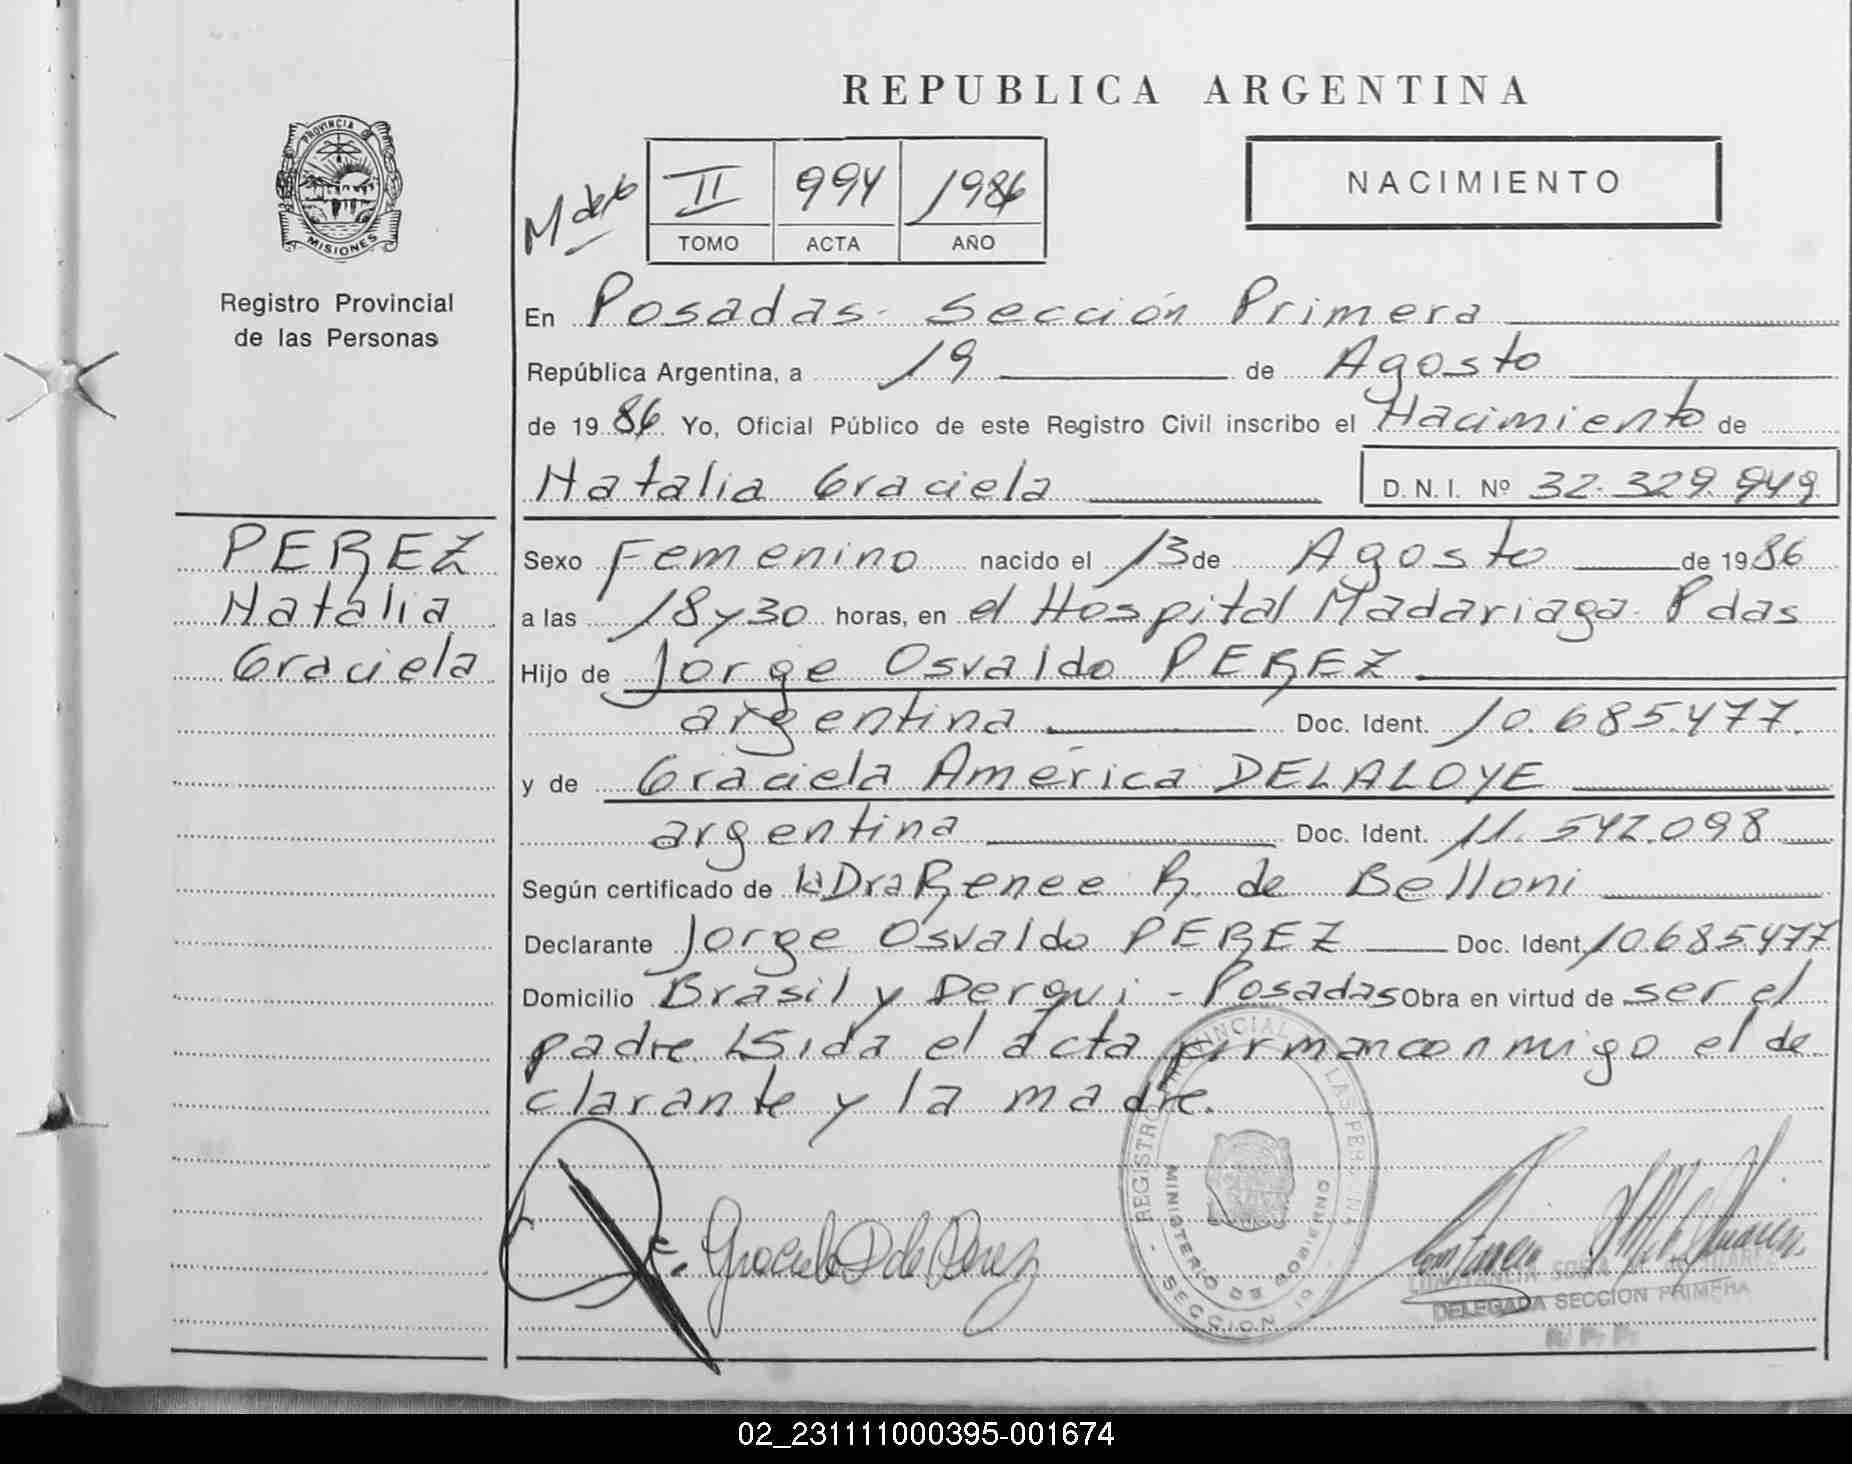 REPUBLICA ARGENTINA
PROVINCIA DE
MISIONES
Registro Provincial
de las Personas
II 994 1986
TOMO ACTA AÑO
NACIMIENTO
En Posadas - Sección Primera
República Argentina, a 19 de Agosto
de 19 86 Yo, Oficial Público de este Registro Civil inscribo el Nacimiento de
Natalia Graciela D. N. I. Nº 32.329.949
PEREZ
Natalia
Graciela
Sexo Femenino nacido el 13 de Agosto de 19 86
a las 18 y 30 horas, en el Hospital Madariaga. Pdas
Hijo de Jorge Osvaldo PEREZ
argentina Doc. Ident. 10.685.477.
y de Graciela América DELALOYE
argentina Doc. Ident. 11.542.098
Según certificado de la Dra Renee R. de Belloni
Declarante Jorge Osvaldo PEREZ Doc. Ident. 10.685.477
Domicilio Brasil y Derqui - Posadas Obra en virtud de ser el
padre Leida el acta firman conmigo el de
clarante y la madre.
REGISTRO PROVINCIAL DE LAS PERSONAS
MINISTERIO DE GOBIERNO
SECCION 1a
Graciela D de Perez
DELEGADA SECCION PRIMERA
R. P. P.
02_231111000395-001674